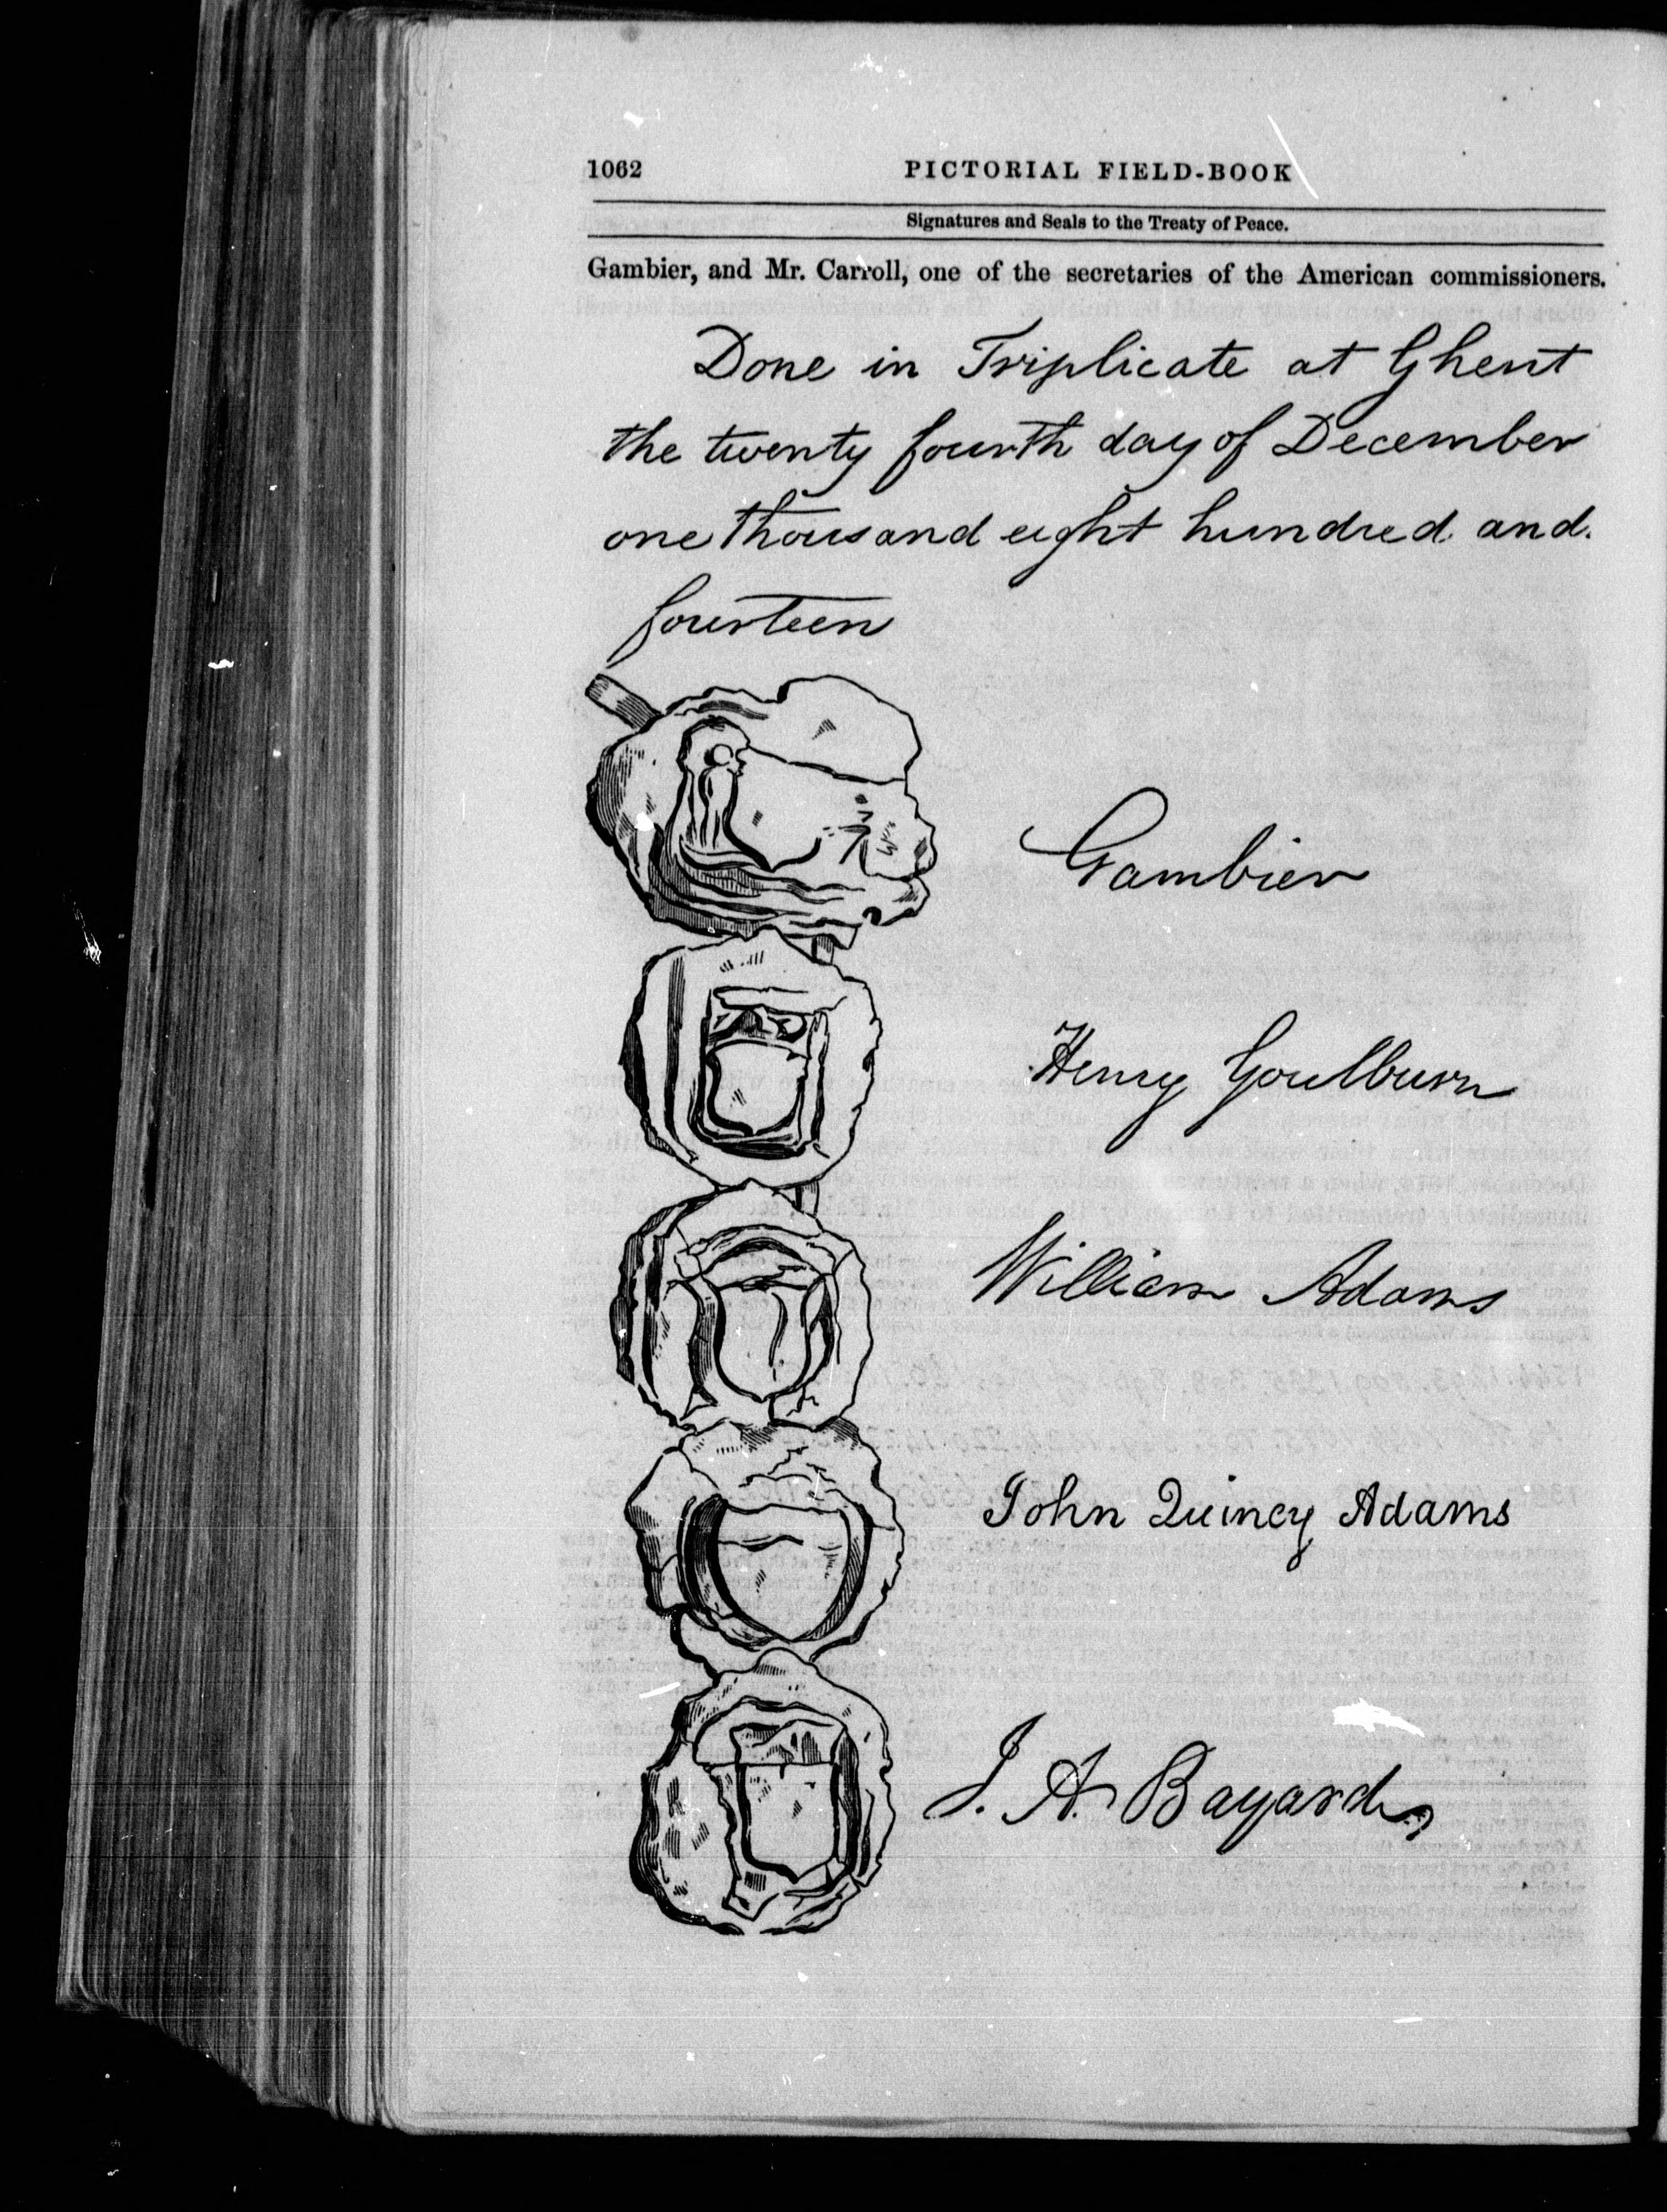 1062 PICTORIAL FIELD-BOOK
Signatures and Seals to the Treaty of Peace.
Gambier, and Mr. Carroll, one of the secretaries of the American commissioners.
Done in Triplicate at Ghent
the twenty fourth day of December
one thousand eight hundred and.
fourteen
Gambier
Henry Goulburn
William Adams
John Quincy Adams
J. A. Bayard